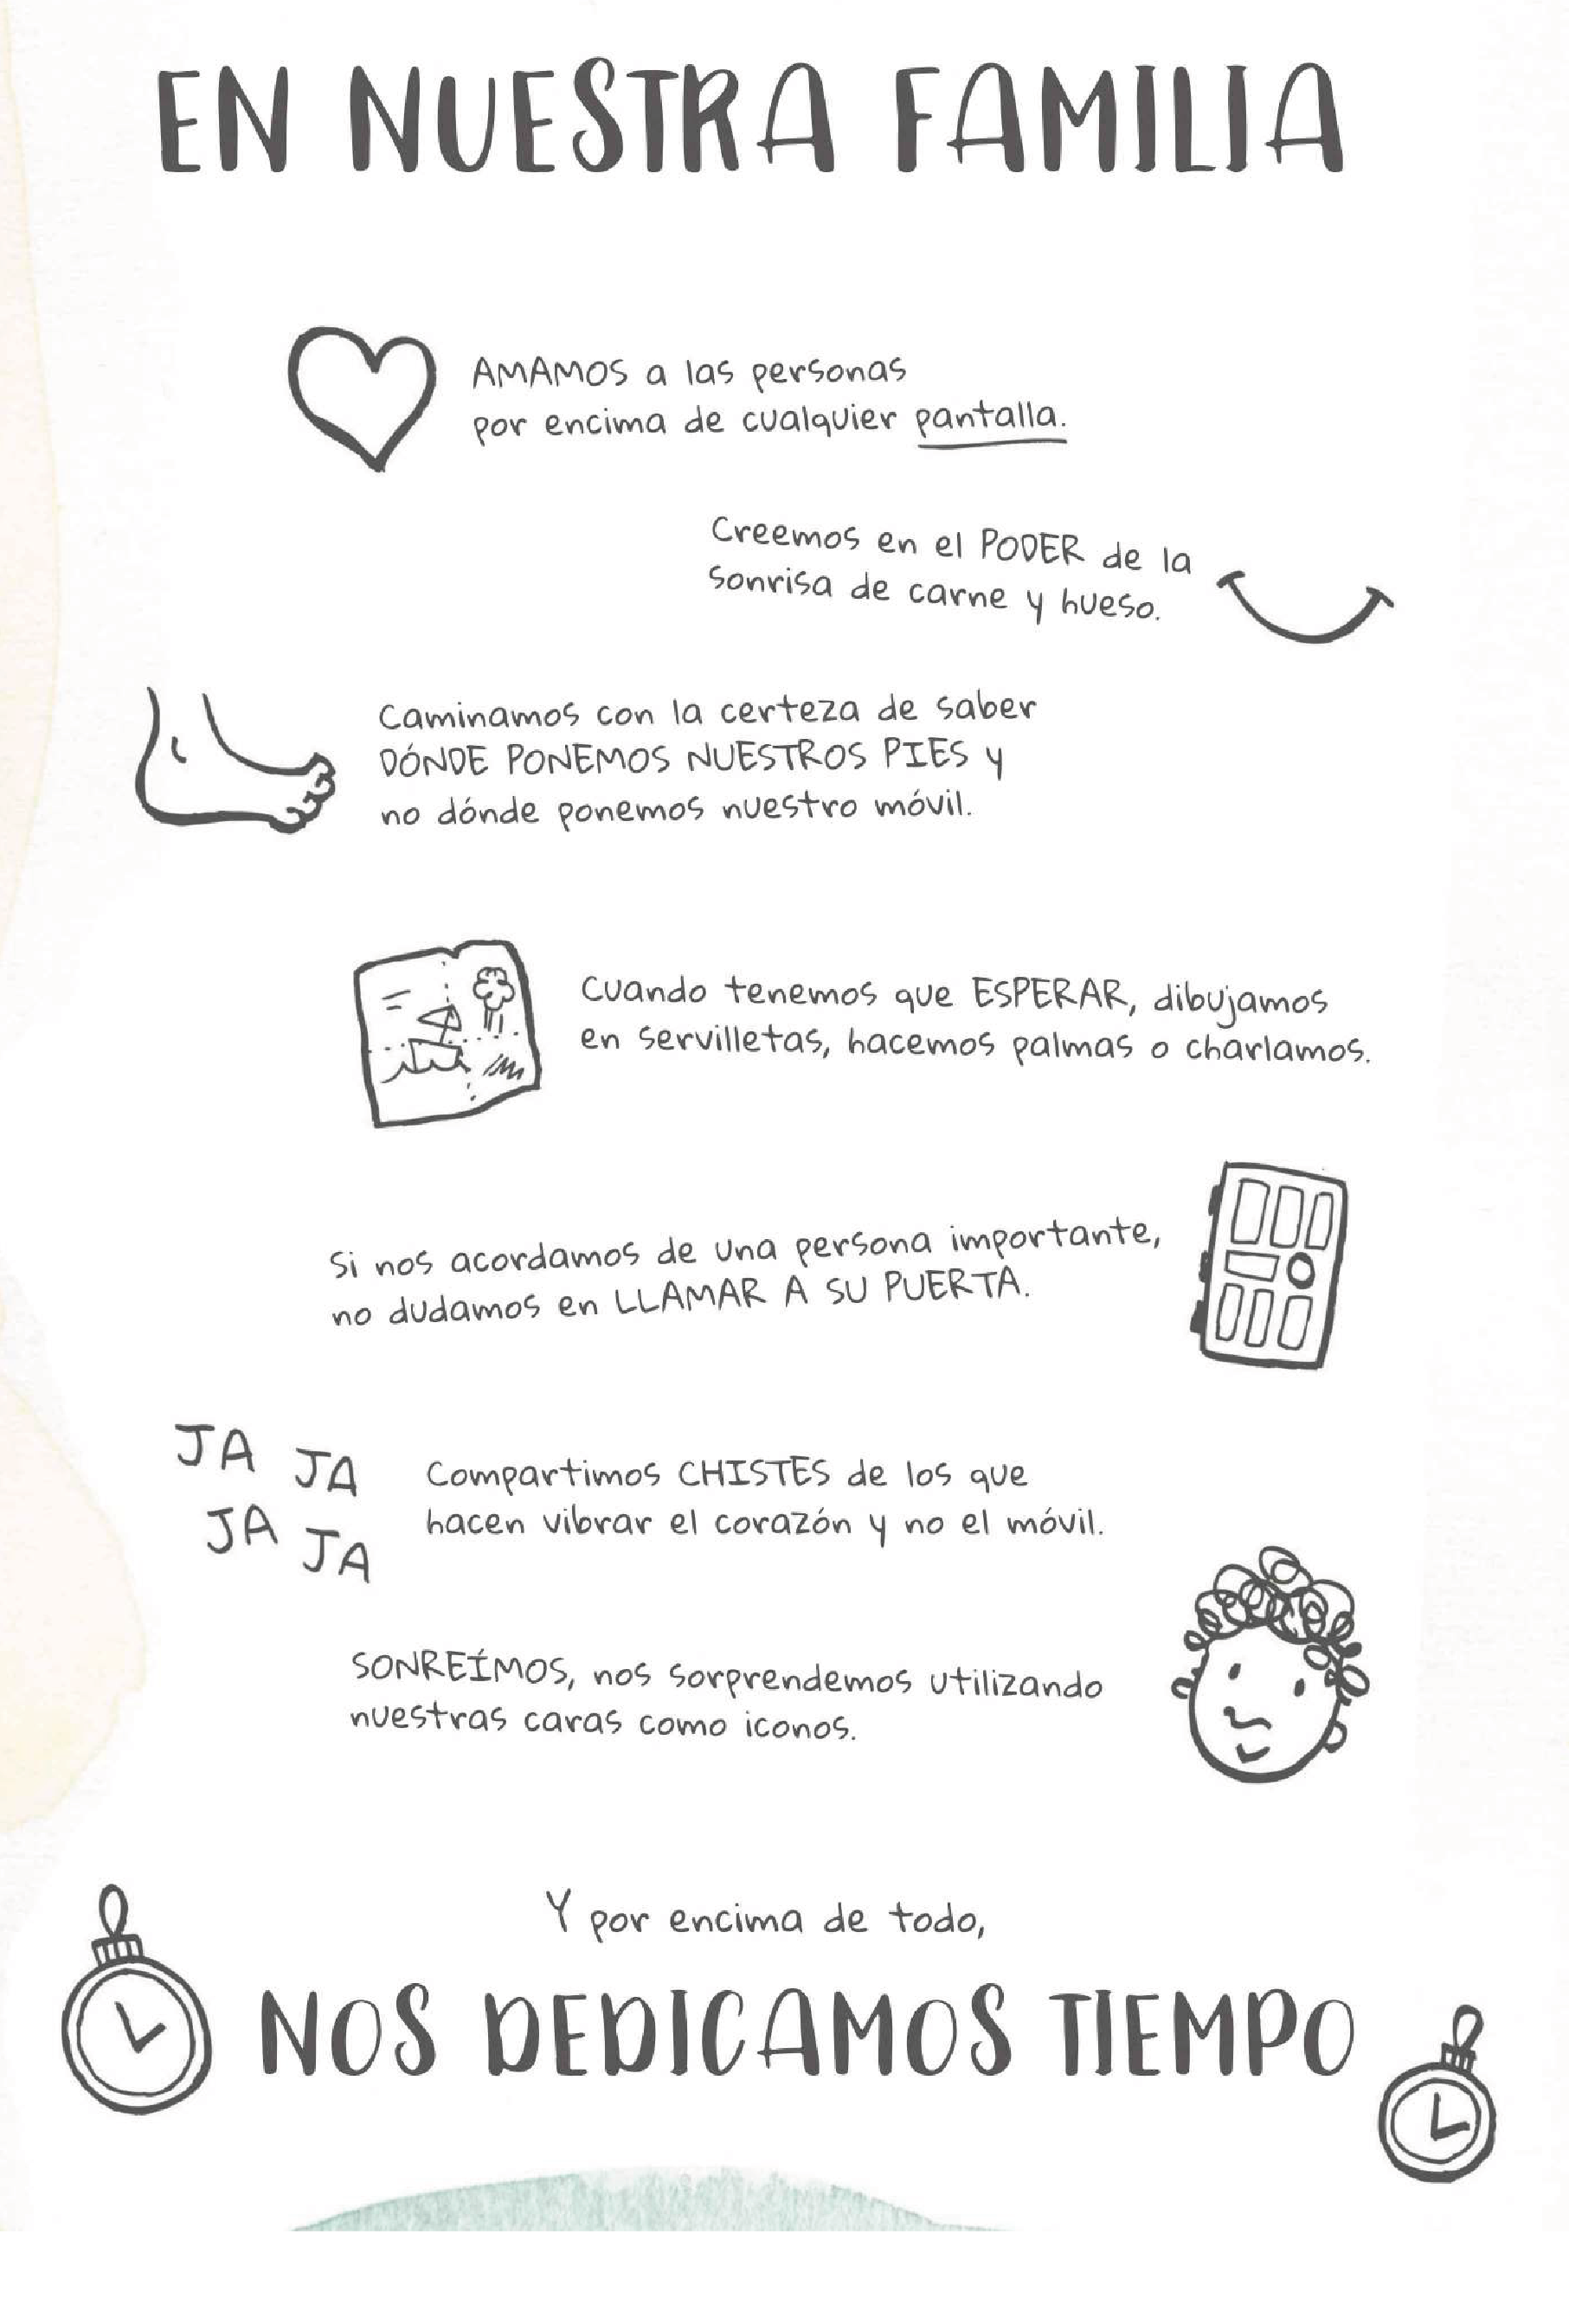 EN NUESTRA FAMILIA
AMAMOS a las personas
por encima de cualquier pantalla.
Creemos en el PODER de la
sonrisa de carne y hueso.
Caminamos con la certeza de saber
DÓNDE PONEMOS NUESTROS PIES y
no dónde ponemos nuestro móvil.
Cuando tenemos que ESPERAR, dibujamos
en servilletas, hacemos palmas o charlamos.
Si nos acordamos de una persona importante,
no dudamos en LLAMAR A SU PUERTA.
JA JA
JA JA
Compartimos CHISTES de los que
hacen vibrar el corazón y no el móvil.
SONREÍMOS, nos sorprendemos utilizando
nuestras caras como iconos.
Y por encima de todo,
NOS DEDICAMOS TIEMPO